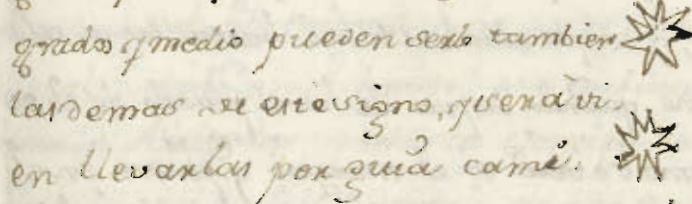 grados y medio pueden serlo tambien
las demas de este signo, y será vi
en llevarlas por guia cami